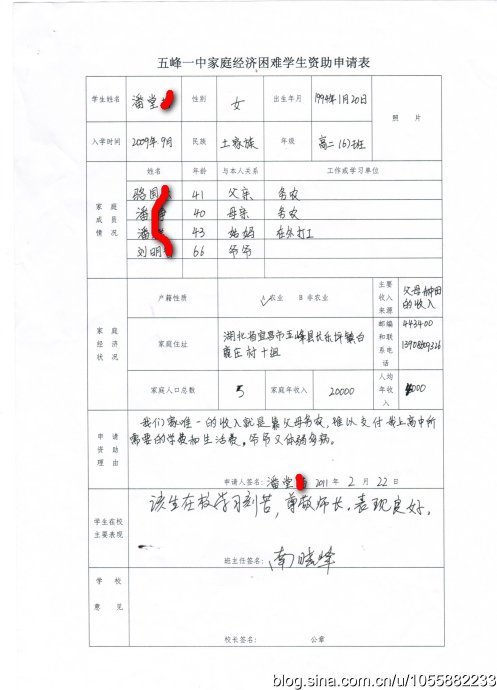 五峰一中家庭经济困难学生资助申请表
学生姓名 潘堂 性别 女 出生年月 1994年1月20日 照 片
入学时间 2009年9月 民族 土家族 年级 高二(6)班
家庭成员情况 姓名 年龄 与本人关系 工作或学习单位
骆国 41 父亲 务农
潘 40 母亲 务农
潘 43 姑妈 在外打工
刘明 66 爷爷
家庭经济状况 户籍性质 A农业 B非农业 主要收入来源 父母种田的收入
家庭住址 湖北省宜昌市五峰县长乐坪镇白 庄村十组 邮编和联系电话 443400
家庭人口总数 5 家庭年收入 20000 人均年收入 4000
申请资助理由 我们家唯一的收入就是靠父母务农,难以支付我上高中所
需要的学费和生活费,爷爷又体弱多病。
申请人签名: 潘堂 2011 年 2 月 22 日
学生在校主要表现 该生在校学习刻苦,尊敬师长,表现良好。
班主任签名: 南晓峰
学校意见
校长签名: 公章
blog.sina.com.cn/u/1055882233